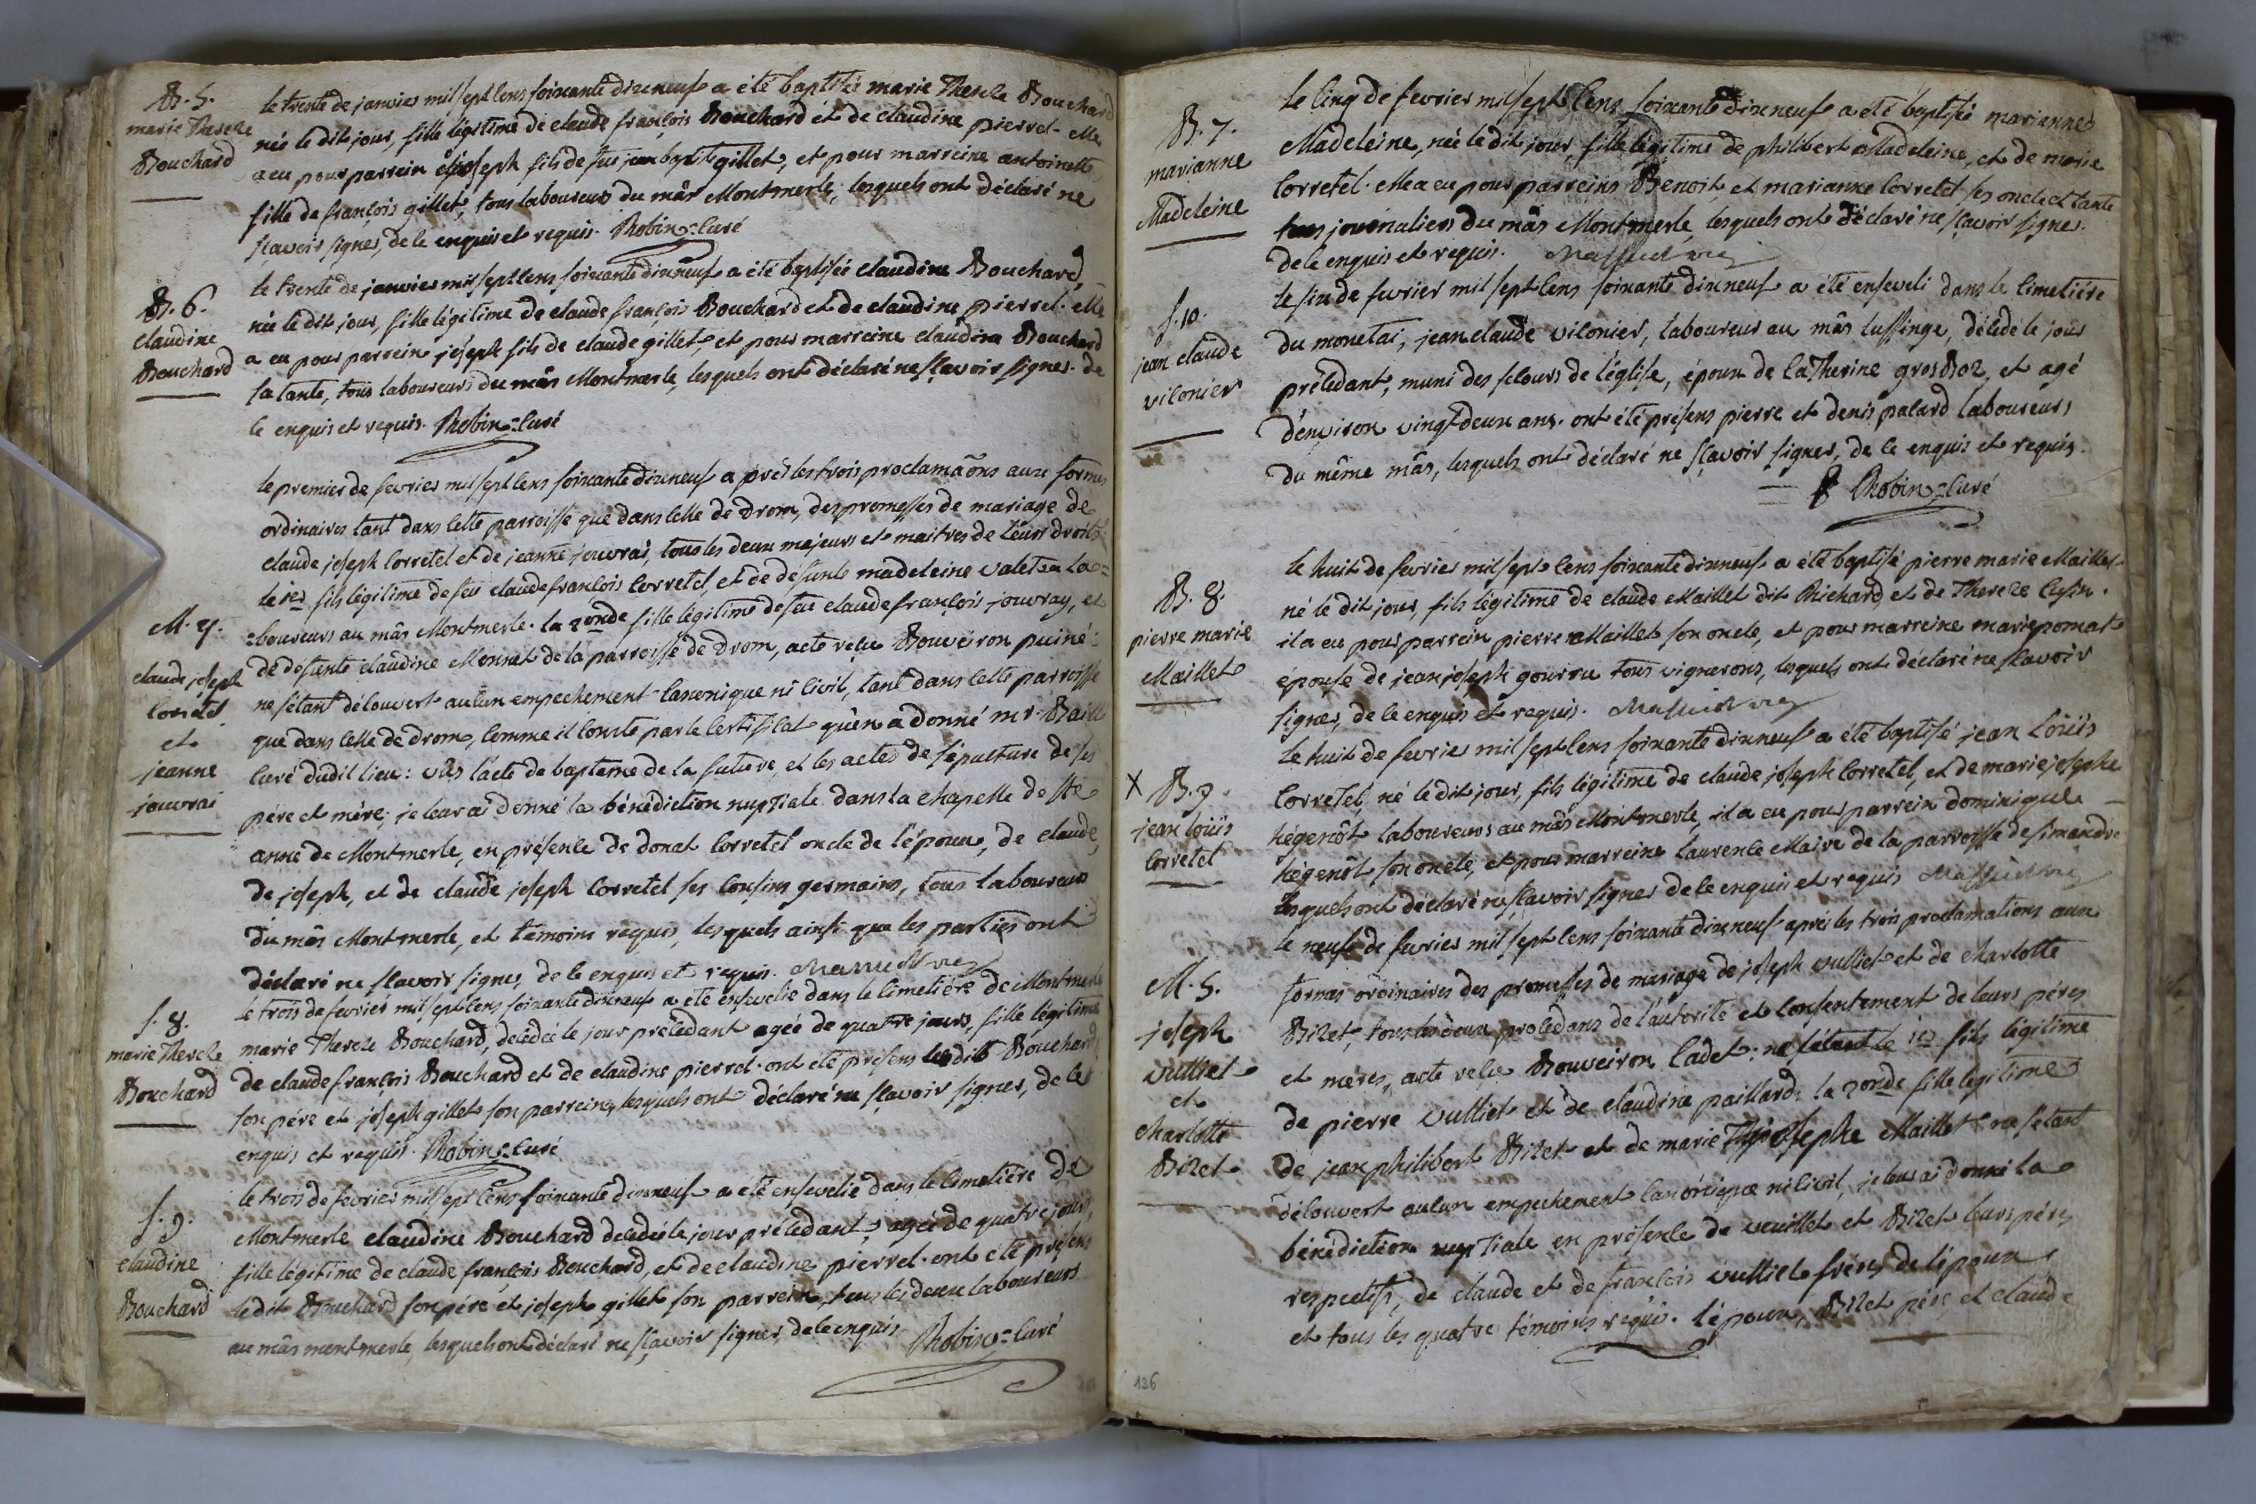 B. 5.
marie Therese
Bouchard
le trente de janvier mil sept cens soixante dix neuf a été baptisée marie Therese Bouchard
née le dit jour, fille légitime de claude françois Bouchard et de claudine pierrel. elle
a eu pour parrein joseph fils de feu jean bapt gillet, et pour marreine antoinette
fille de françois gillet, tous laboureurs du mâs Montmerle, lesquels ont déclaré ne
sçavoir signer, de ce enquis et requis. Robin=curé
B. 6.
claudine
Bouchard
le trente de janvier mil sept cens soixante dix neuf a été baptisée claudine Bouchard,
née le dit jour, fille légitime de claude françois Bouchard et de claudine pierrel. elle
a eu pour parrein joseph fils de claude gillet, et pour marreine claudine Bouchard
sa tante, tous laboureurs du mâs Montmerle, lesquels ont déclaré ne sçavoir signer. de
ce enquis et requis. Robin=curé
M. 4.
claude joseph
corretel
et
jeanne
jouvrai
le premier de fevrier mil sept cens soixante dix neuf a près les trois proclamaõns aux formes
ordinaires tant dans cette parroisse que dans celle de Drom, des promesses de mariage de
claude joseph corretel et de jeanne jouvrai, tous les deux majeurs et maitres de leurs droits
le 1er fils légitime de feu claude françois corretel, et de défunte madeleine valet la=
=boureurs au mâs Montmerle. la 2onde fille légitime de feu claude françois jouvray, et
de défunte claudine Monnat de la parroisse de Drom, acte reçu Bouveiron puiné:
ne s'étant découvert aucun empechement canonique ni civil, tant dans cette parroisse
que dans celle de Drom, comme il conste par le certificat qu'en a donné mr. Baille
curé dudit lieu: vûs l'acte de baptême de la future, et les actes de sépulture de ses
pére et mére; je leur ai donné la bénédiction nuptiale dans la chapelle de Ste
anne de Montmerle, en présence de donat corretel oncle de l'époux, de claude,
de joseph, et de claude joseph corretel ses cousins germains, tous laboureurs
du mâs Montmerle, et témoins requis, lesquels ainsi que les parties ont
déclaré ne sçavoir signer, de ce enquis et requis.
s. 8.
marie Therese
Bouchard
le trois de fevrier mil sept cens soixante dix neuf a été ensevelie dans le cimetière de Montmerle
marie Therese Bouchard, décédée le jour précédant agée de quatre jours, fille légitime
de claude françois Bouchard et de claudine pierrel. ont été présens ledit Bouchard
son pére et joseph gillet son parrein, lesquels ont déclaré ne sçavoir signer, de ce
enquis et requis. Robin=curé
s. 9.
claudine
Bouchard
le trois de fevrier mil sept cens soixante dix neuf a été ensevelie dans le cimetière de
Montmerle claudine Bouchard décédée le jour précédant, agée de quatre jours,
fille légitime de claude françois Bouchard, et de claudine pierrel. ont été présens
ledit Bouchard son pére et joseph gillet son parrein, tous les deux laboureurs
au mâs montmerle, lesquels ont déclaré ne sçavoir signer, de ce enquis Robin=curé
B. 7.
marianne
Madeleine
le cinq de fevrier mil sept cens soixante dix neuf a été baptisée marianne
Madeleine, née le dit jour, fille légitime de philibert Madeleine, et de marie
corretel. elle a eu pour parreins Benoit et marianne corretel ses oncle et tante
tous journaliers du mâs Montmerle, lesquels ont déclaré ne sçavoir signer.
de ce enquis et requis.
s. 10.
jean claude
vilonier
le six de fevrier mil sept cens soixante dix neuf a été enseveli dans le cimetiére
du monetai, jean claude vilonier, laboureur au mâs lussinge, décédé le jour
précédant, muni des secours de l'église, époux de catherine grosboz, et agé
d'environ vingt deux ans. ont été présens pierre et denis palard laboureurs
du même mâs, lesquels ont déclaré ne sçavoir signer, de ce enquis et requis.
Robin=curé
B. 8.
pierre marie
Maillet
le huit de fevrier mil sept cens soixante dix neuf a été baptisé pierre marie Maillet
né le dit jour, fils légitime de claude Maillet dit Richard, et de Therese Cusin.
il a eu pour parrein pierre Maillet son oncle, et pour marreine marie pomat
épouse de jean joseph gourru tous vignerons, lesquels ont déclaré ne sçavoir
signer, de ce enquis et requis.
X B. 9.
jean loüis
corretel
le huit de fevrier mil sept cens soixante dix neuf a été baptisé jean loüis
corretel né le dit jour, fils légitime de claude joseph corretel, et de marie josephe
hégenôt laboureurs au mâs Montmerle, il a eu pour parrein dominique
hégenôt, son oncle, et pour marreine laurence Maire de la parroisse de simandre
lesquels ont déclaré ne sçavoir signer de ce enquis et requis
M. 5.
joseph
vulliet
et
charlotte
Bizet
le neuf de fevrier mil sept cens soixante dix neuf aprés les trois proclamations aux
formes ordinaires des promesses de mariage de joseph vulliet et de charlotte
Bizet, tous les deux procédans de l'autorité et consentement de leurs péres
et méres, acte reçu Bouveiron cadet: ne s'étant le 1er fils légitime
de pierre vulliet et de claudine paillard: la 2onde fille légitime
de jean philibert Bizet et de marie josephe Maillet: ne s'étant
découvert aucun empechement canonique ni civil, je leur ai donné la
bénédiction nuptiale en présence de vuillet et Bizet leurs péres
respectifs, de claude et de françois vulliet fréres de l'époux
et tous les quatre témoins requis. l'époux, Bizet pére, et claude
136